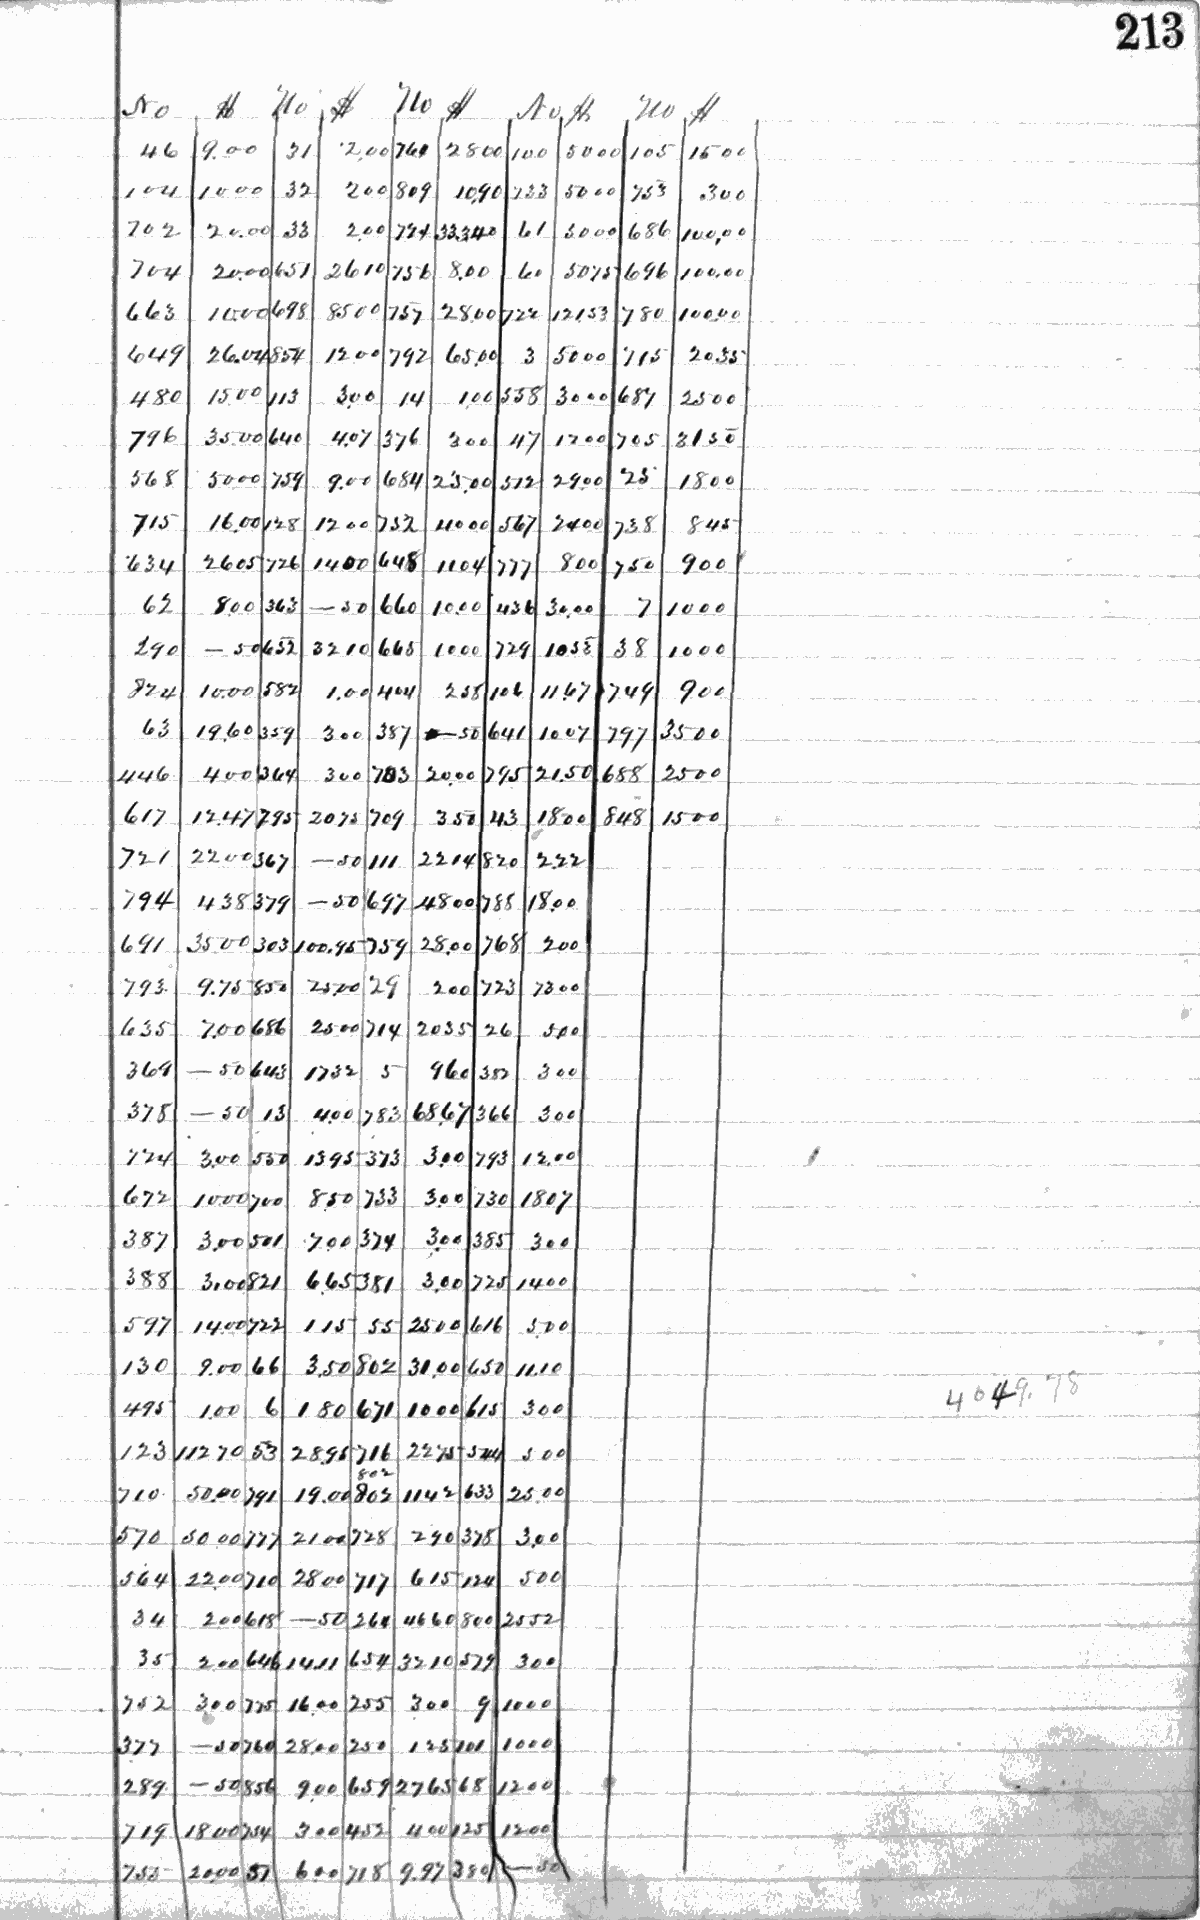 213
No $ No $ No $ No $ No $
46 9.00 31 2.00 760 2800 100 5000 105 1500
104 1000 32 200 809 1090 733 5000 753 .300
702 20.00 33 2.00 724 33340 61 3000 686 100,00
704 20.00 651 2610 756 8.00 60 5075 696 100.00
663 10.00 698 8500 757 28.00 722 12153 780 100.00
649 26.04 854 1200 792 65.00 3 5000 715 2035
480 1500 113 3.00 14 1.00 558 3000 687 2500
796 35.00 640 4.07 376 300 47 1200 705 3150
568 5000 759 9.00 684 25.00 572 29.00 25 1800
715 16.00 128 1200 752 4000 567 2400 738 845
634 2605 726 1400 648 1104 777 800 750 900
62 8.00 363 —50 660 10.00 436 30.00 7 1000
290 —50 652 3210 665 1000 729 1055 38 1000
824 10.00 582 1.00 404 258 106 11.67 749 900
63 19.60 359 300 387 —50 641 1007 797 3500
446 400 364 300 783 20.00 795 21.50 688 2500
617 12.47 795 2075 709 350 43 1800 848 1500
721 2200 367 —50 111 2214 820 222
794 438 379 —50 697 4800 788 18.00
691 35.00 303 100.95 759 28.00 768 200
793 9.75 850 25.00 29 200 723 7300
635 7.00 686 2500 714 2035 26 5.00
369 —50 643 1732 5 960 382 300
378 —50 13 4.00 783 68.67 366 300
724 3.00 550 1395 373 3.00 793 12.00
672 10.00 700 850 733 3.00 730 1807
387 3.00 501 700 374 3.00 385 300
388 3.00 821 665 381 3.00 725 1400
597 14.00 722 115 55 2500 616 500
130 9.00 66 3.50 802 31.00 650 11.10
4049.78
495 1.00 6 180 671 1000 615 300
123 11270 53 28.95 716 2275 544 500
802
710 50.00 791 19.00 802 1142 633 25.00
570 5000 777 2100 728 290 378 3.00
564 22.00 710 2800 717 615 124 500
34 200 618 —50 260 4660 800 2552
35 2.00 646 14.11 654 3210 579 300
752 300 775 16.00 255 300 9 1000
377 —50 760 28.00 250 125 101 1000
289 —50 856 900 659 2765 68 1200
719 1800 754 300 452 400 125 1200
755 2000 37 600 718 9.97 380 —50